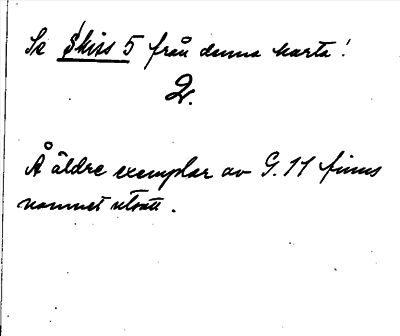 Se Skiss 5 från denna karta!
2.
Å äldre exemplar av G. 11 finns
namnet utsatt.